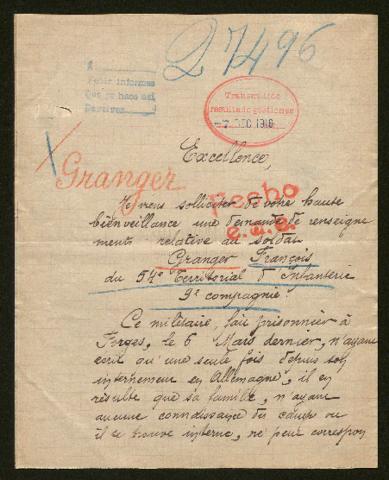 27496
A
Pedir informes
Que se hace así
Transmitido
resultado gestiones
-7 DIC 1916
Excellence,
Granger
Hecho
Je viens solliciter de votre haute
bienveillance une demande de renseigne
ments relative au soldat
Granger François
du 54e Territorial d'Infanterie
9e compagnie.
Ce militaire, fait prisonnier à
Forges, le 6 Mars dernier, n'ayant
écrit qu'une seule fois depuis son
internement en Allemagne, il en
résulte que sa famille, n'ayant
aucune connaissance du camp ou
il se trouve interné, ne peut correspon